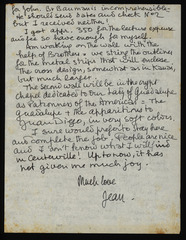 John Br Bauman is incomprehensible.
He should send dates and check No 2
but I received neither!
I got appr. 350 for the lecture expense
and so have enough for myself.
I am working on the wall with the
help of Brother + we string the outlines
for the metal strips that will enclose
the cross design, somewhat as in Kauai,
but much larger.
The second wall will be in the right
chapel dedicated to Our Lady of Guadalupe
as Patroness of the Americas - The
Guadalupe + the apparitions to
Juan Diego, in very soft colors.
I sure would prefer to stay here
and complete the job. People are nice
and I don't know what I will
in Centerville! Up to now, it has
not given me much joy.
Much love
Jean